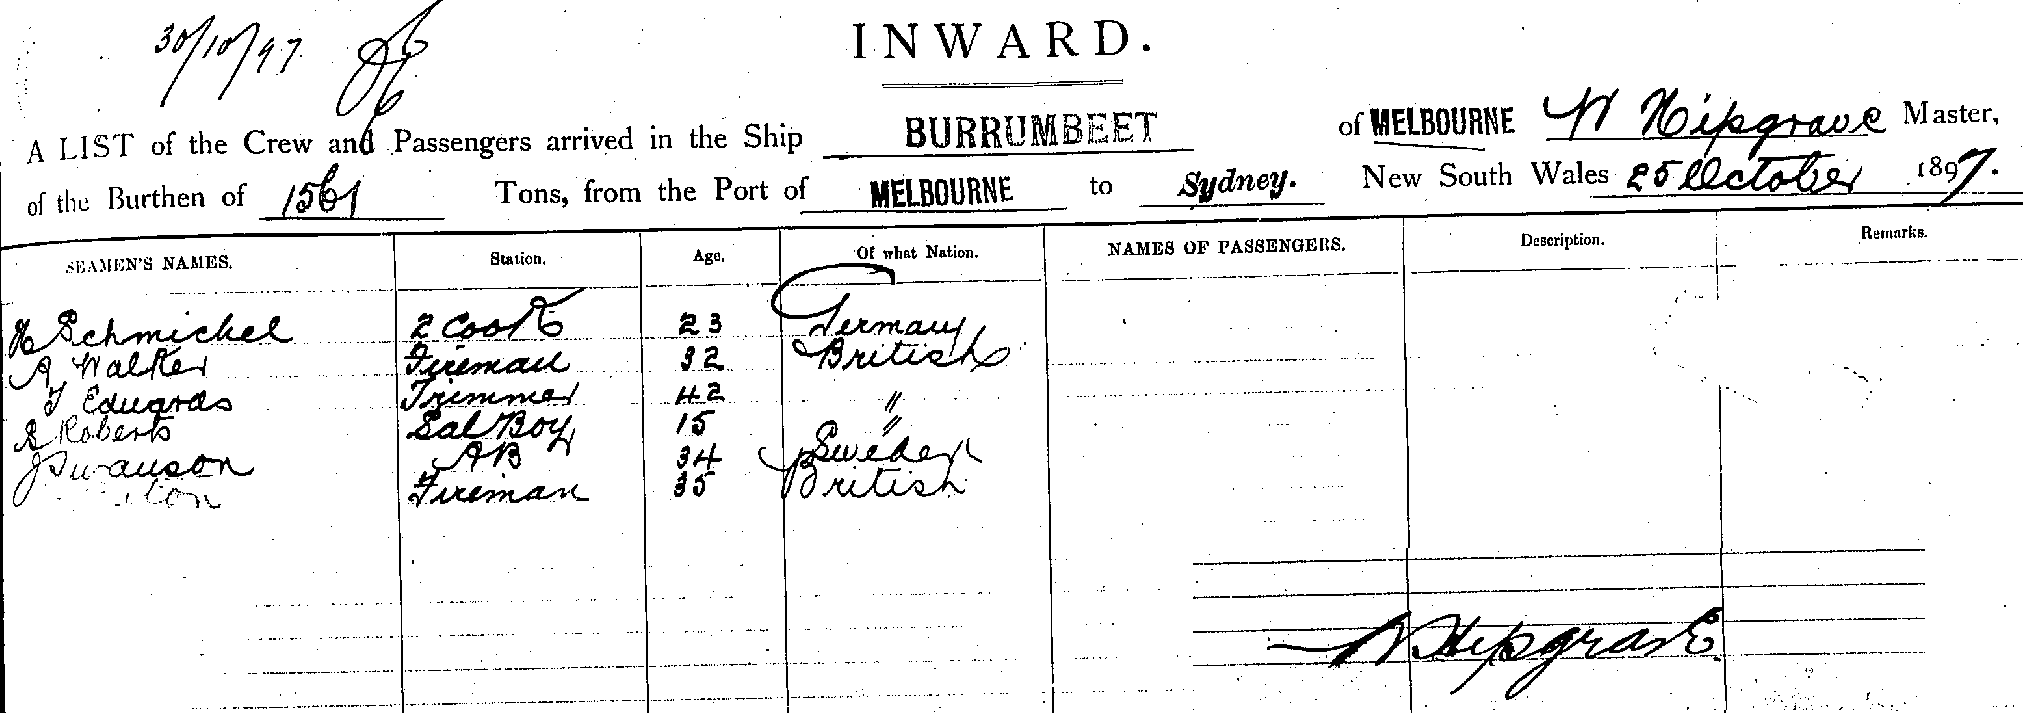 30/10/97
INWARD.
A LIST of the Crew and Passengers arrived in the Ship BURRUMBEET of MELBOURNE W Hipgrave Master,
of the Burthen of 1561 Tons, from the Port of MELBOURNE to Sydney. New South Wales 25 October 1897.
SEAMEN'S NAMES. Station. Age. Of what Nation. NAMES OF PASSENGERS. Description. Remarks.
H Schmickel 2 Cook 23 Germany
A Walker Fireman 32 British
T Edwards Trimmer 42 "
A Roberts Sal Boy 15 "
J Swanson AB 34 Sweden
Fireman 35 British
W Hipgrave